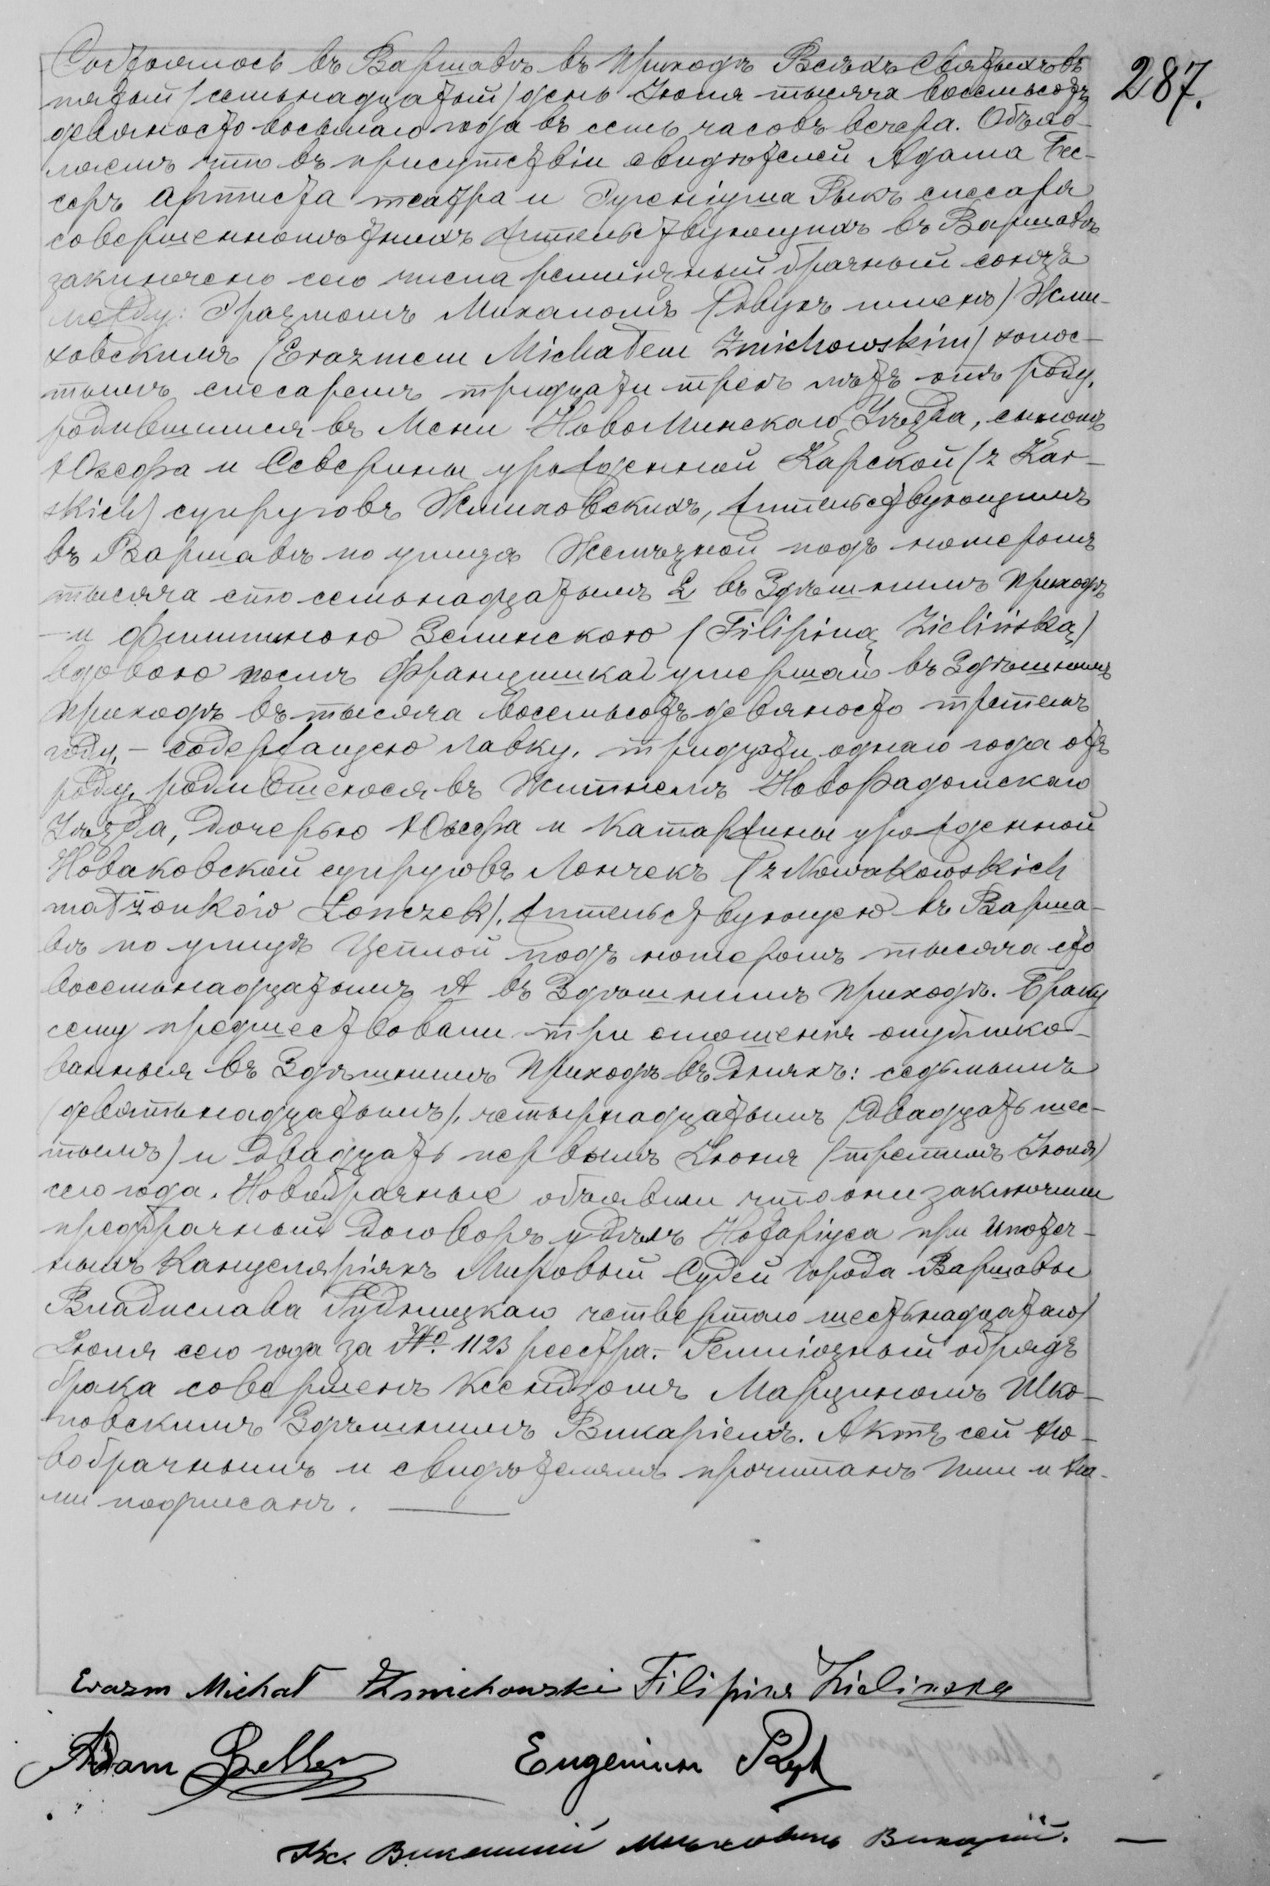 287.
Состоялось въ Варшавѣ въ приходѣ Всѣхъ Святыхъ въ
пятый (семьнадцатый) день Іюля тысяча восемьсотъ
девяносто восьмаго года въ семь часовъ вечера. Объяв-
ляемъ что въ присутствіи свидѣтелей Адама
артиста театра и Эугеніуша Рыкъ слесаря
совершеннолѣтнихъ жительствующихъ въ Варшавѣ
заключено сего числа религіозный брачный союзъ
между: Эразмомъ Михаломъ (двухъ именъ) Жми-
ховскимъ (Erazmem Michałem Żmichowskim) холос-
тымъ слесаремъ тридцати трехъ лѣтъ отъ роду,
родившимся въ Мени НовоМинскаго Уѣзда, сыномъ
Юзефа и Северины урожденной Карской (z Kar-
skich) супруговъ Жмиховскихъ, жительствующимъ
въ Варшавѣ по улицѣ Желѣзной подъ номеромъ
тысяча сто семьнадцатымъ L въ Здѣшнимъ приходѣ
— и Филипиною Зелинскою (Filipiną Zielińską)
вдовою послѣ Францишка умершаго въ Здѣшнимъ
приходѣ въ тысяча восемьсотъ девяносто третьемъ
году, — содержащею лавку, тридцати одного года отъ
роду, родившеюся въ Житнемъ Новорадомскаго
Уѣзда, дочерью Юзефа и Катаржины урожденной
Новаковской супруговъ Лончекъ (z Nowakowskich
małżonków Łonczek), жительствующею въ Варша-
вѣ по улицѣ Цеплой подъ номеромъ тысяча сто
восемьнадцатымъ A въ Здѣшнимъ приходѣ. Браку
сему предшествовали три оглашенія опублико-
ванныя въ Здѣшнимъ приходѣ въ дняхъ: седьмымъ
(девятьнадцатымъ), четырнадцатымъ (двадцать шес-
тымъ) и двадцать первымъ Іюня (третимъ Іюля)
сего года. Новобрачные объявили что они заключили
предбрачный договоръ у Нотаріуса при Ипотеч-
ныхъ Канцеляріяхъ Мировый Судей Города Варшавы
Владислава Рудницкаго четвертаго (шестьнадцатаго)
Іюля сего года за № 1123 реестра. — Религіозный обрядъ
брака совершенъ Ксендзомъ Марциномъ Шко-
повскимъ Здѣшнимъ Викаріемъ. Актъ сей Но-
вобрачнымъ и свидѣтелямъ прочитанъ Ими и На-
ми подписанъ. —
Erazm Michał Żmichowski Filipina Zielinska
Adam Eugeniusz Ryk
Кс. Викарій. —